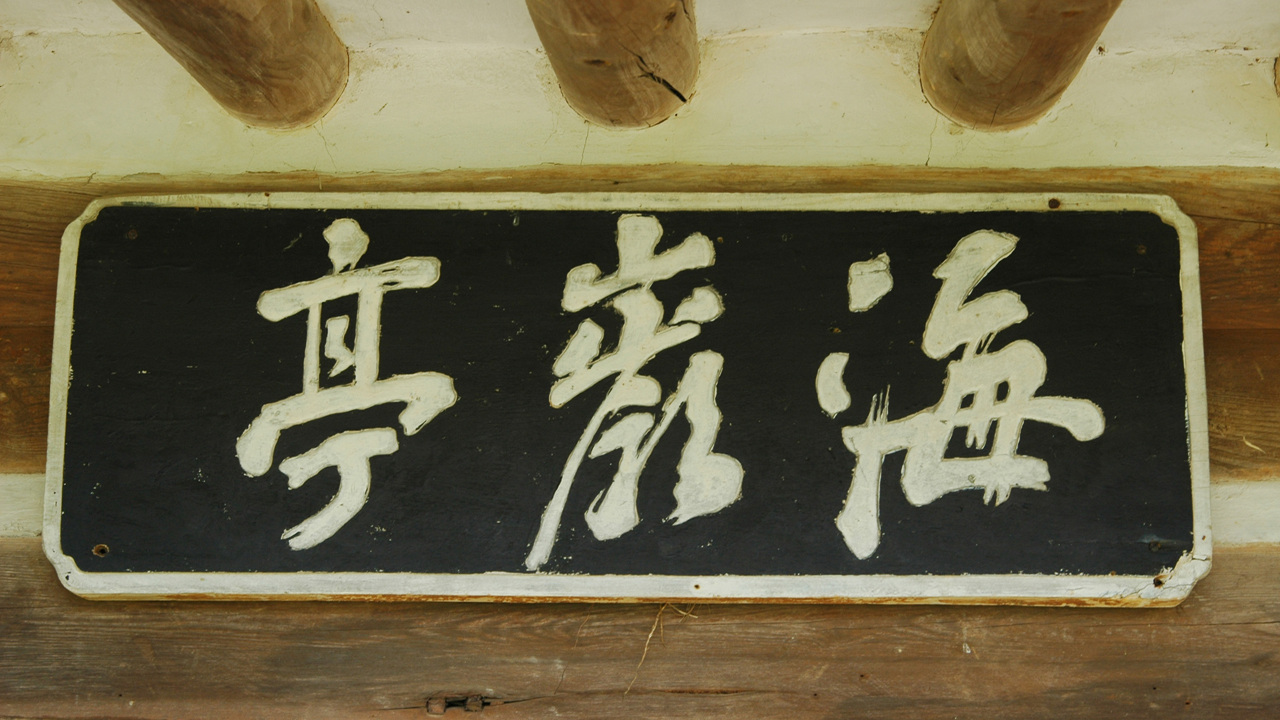 海巖亭